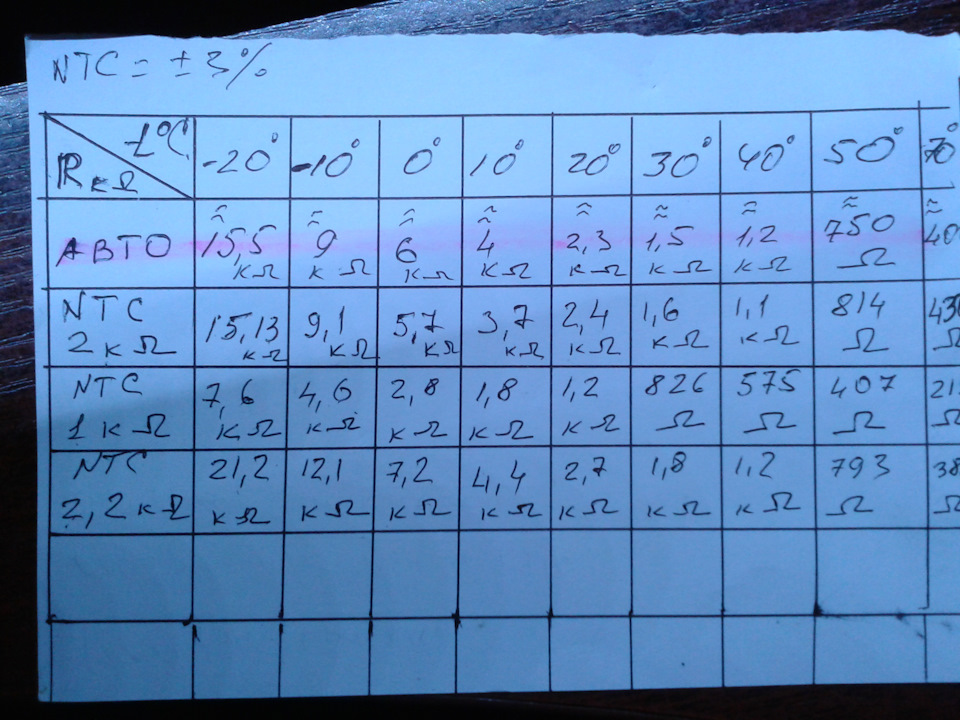 NTC = ± 3%
t°C -20° -10° 0° 10° 20° 30° 40° 50° 70°
R кΩ
≈ ≈ ≈ ≈ ≈ ≈ ≈ ≈ ≈
АВТО 15,5 9 6 4 2,3 1,5 1,2 750 40
кΩ кΩ кΩ кΩ кΩ кΩ кΩ Ω
NTC 15,13 9,1 5,7 3,7 2,4 1,6 1,1 814 430
2 кΩ кΩ кΩ кΩ кΩ кΩ кΩ кΩ Ω Ω
NTC 7,6 4,6 2,8 1,8 1,2 826 575 407 21
1 кΩ кΩ кΩ кΩ кΩ кΩ Ω Ω Ω Ω
NTC 21,2 12,1 7,2 4,4 2,7 1,8 1,2 793 38
2,2 кΩ кΩ кΩ кΩ кΩ кΩ кΩ кΩ Ω Ω